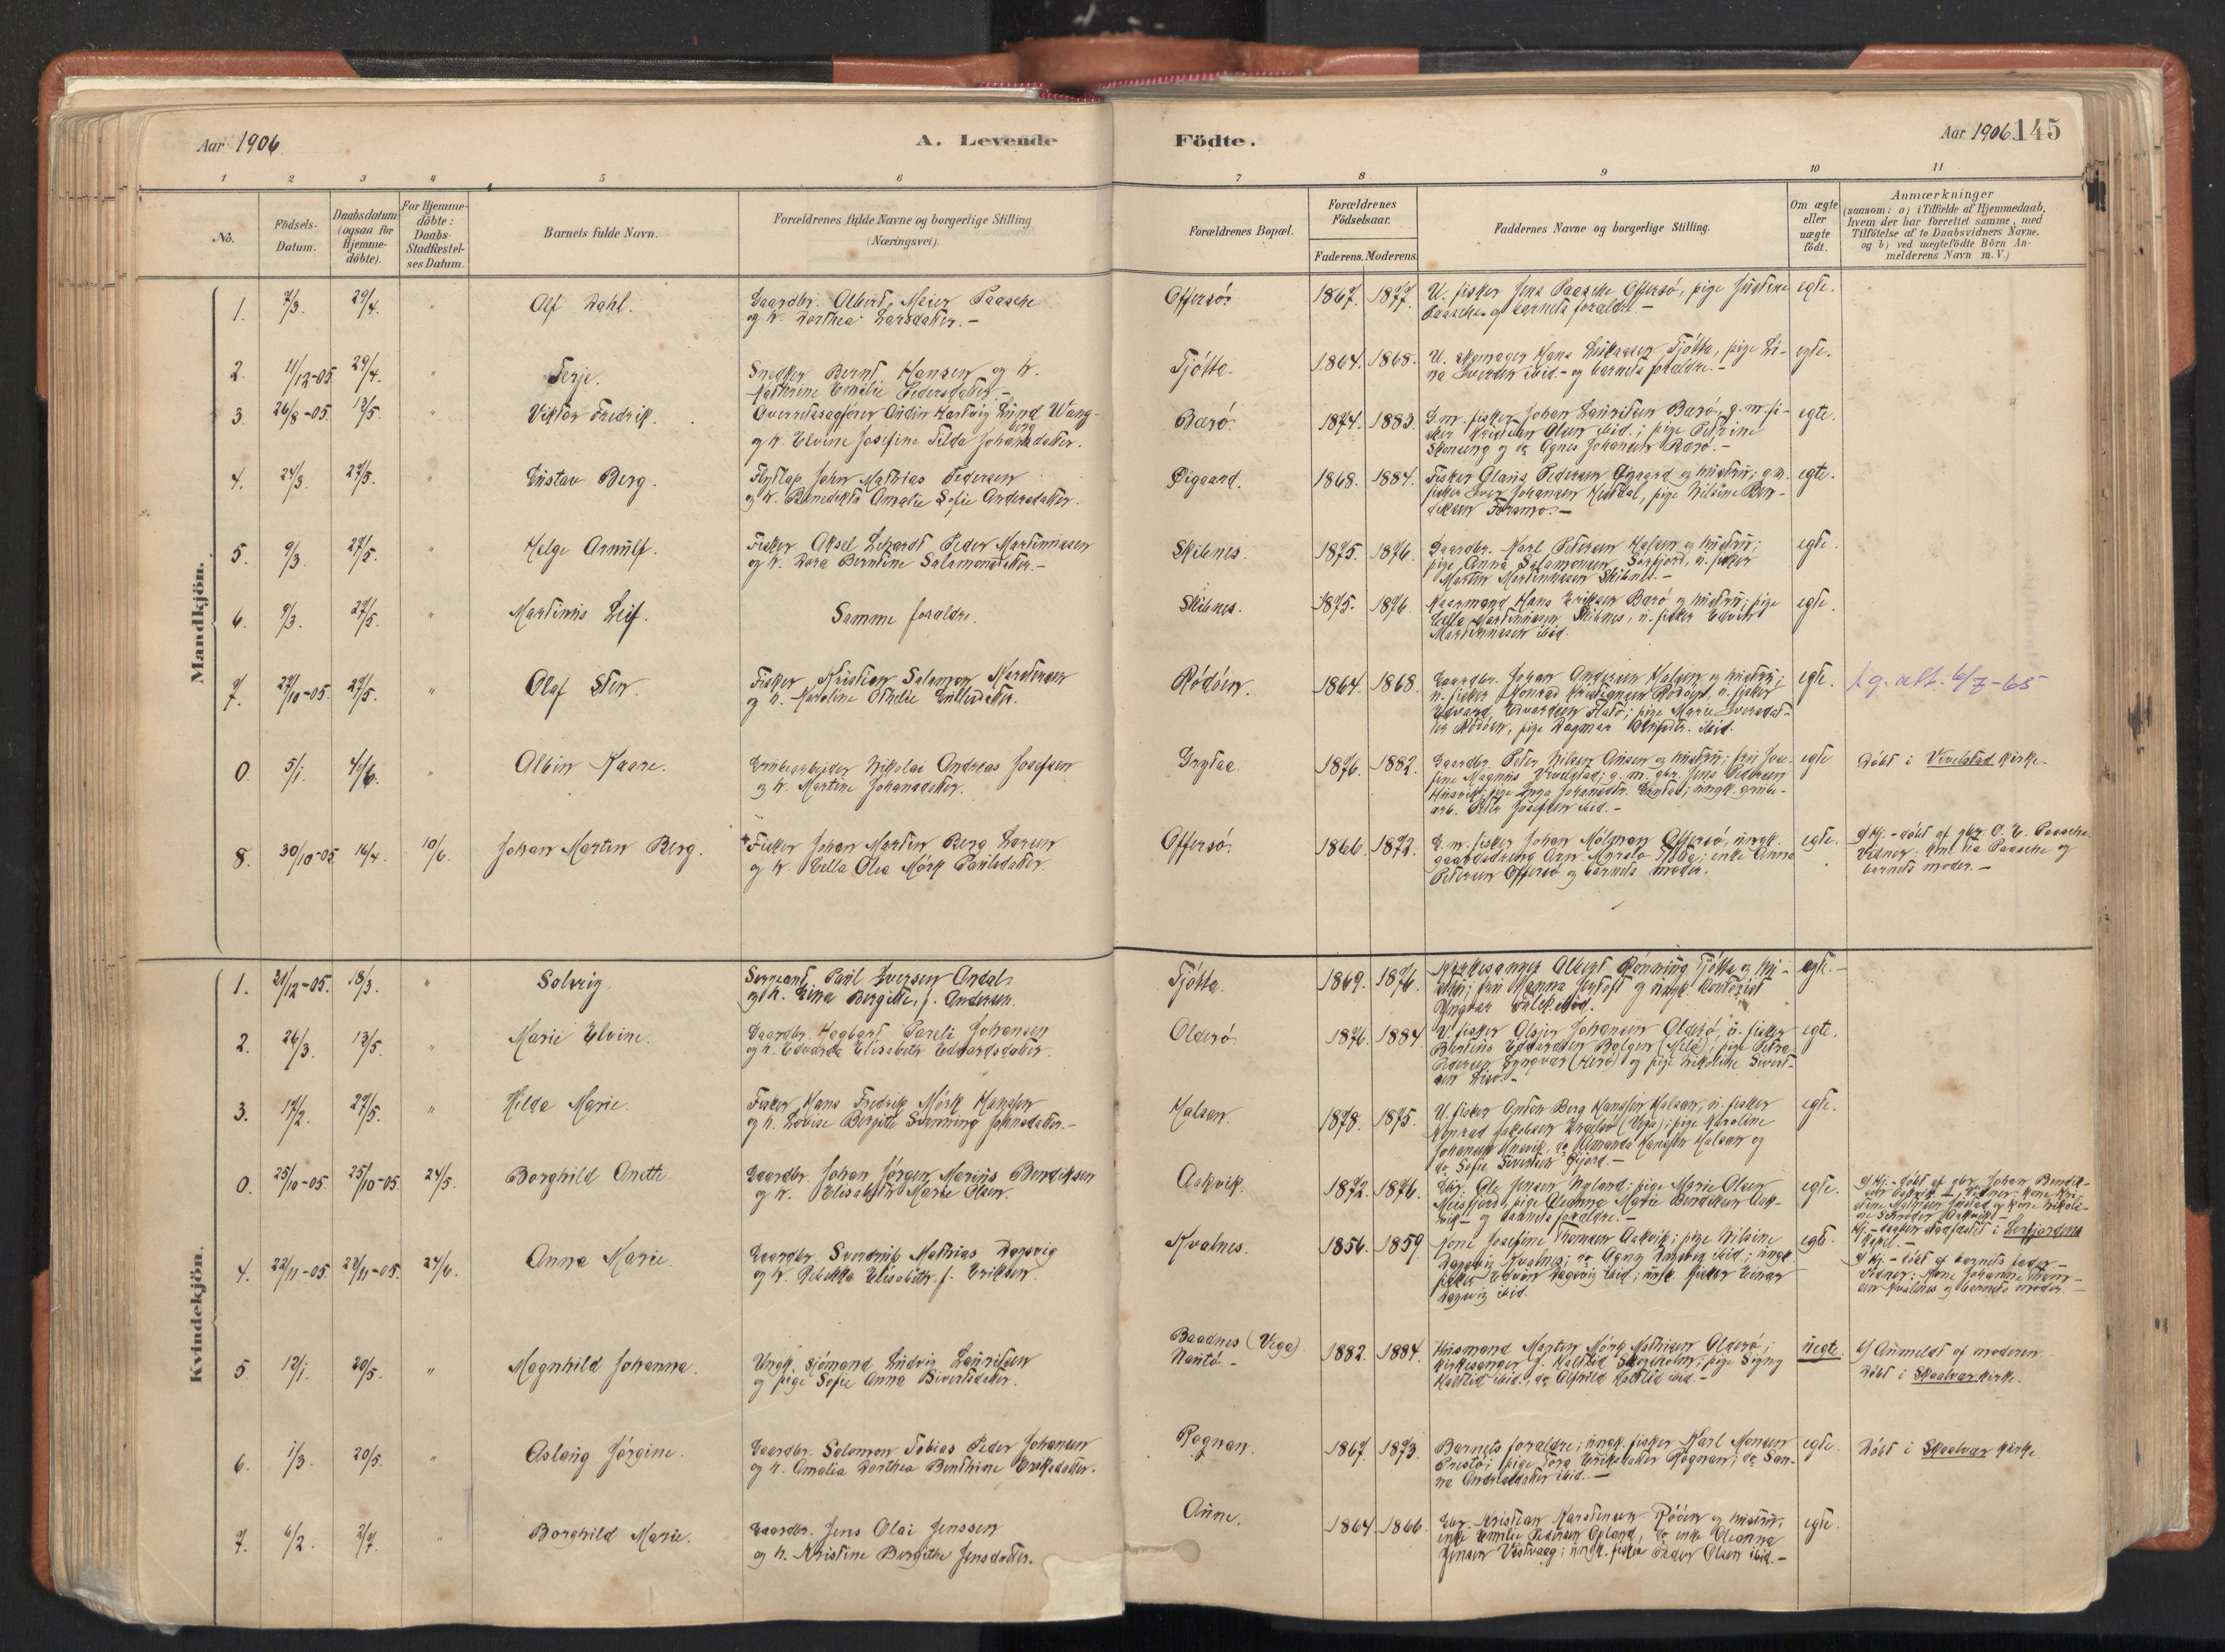 Aar 1906.
A. Levende
Födte.
Aar 1906 145
1 2 3 4 5 6 7 8 9 10 11
No.
Födsels-
Datum.
Daabsdatum
(ogsaa for
Hjemme-
döbte).
For Hjemme-
döbte:
Daabs-
Stadfæstel-
ses Datum.
Barnets fulde Navn.
Forældrenes fulde Navne og borgerlige Stilling
(Næringsvei).
Forældrenes Bopæl.
Forældrenes
Födselsaar.
Faderens. Moderens.
Faddernes Navne og borgerlige Stilling.
Om ægte
eller
uægte
födt.
Anmærkninger
(saasom: a) i Tilfælde af Hjemmedaab,
hvem der har forrettet samme, med
Tilföielse af to Daabsvidners Navne.
og b) ved uægtefödte Börn An-
melderens Navn m. V.)
Mandkjön.
1. 7/3. 29/4. " Alf Dahl.
Gaardbr. Albert Meier Paasche
og h. Dorthea Larsdatter. -
Offersö. 1867. 1877.
U. fisker Jens Paasche Offersö, pige Justine
Paasche og barnets forældre. -
egte.
2. 11/12-05. 29/4. " Terje.
Snedker Bernt Hansen og h.
Kathrine Emilie Pedersdatter. -
Tjötta. 1864. 1868.
U. skomager Hans Tjötta, pige Li-
na Iversen ibid. - og barnets forældre. -
egte.
3. 26/8-05. 13/5. " Viktor Fredrik.
Overretssagförer Andin Hartvig Lund Wang-
berg
og h. Elvine Josefine Tilda Johansdatter.
Barö. 1874. 1883.
G.m. fisker Johan Lauritsen Barö, g.m. fi-
sker Kristian Olsen ibid.; pige Petrine
og do Agnes Johansen Barö. -
egte.
4. 24/3. 27/5. " Gustav Berg.
John Mathias Pedersen
og h. Benedikte Amalie Sofie Andersdatter.
Öigaard. 1868. 1884.
Fisker Olaus Pedersen Öigaard og hustru; g.m.
fisker Iver Johansen pige Nilsine Ben-
diksen Forsmo. -
egte.
5. 9/3. 27/5. " Helge Arnulf.
Fisker Aksel Lehardt Peder Martinussen
og h. Dora Berntine Salamonsdatter. -
Skibnes. 1875. 1876.
Gaardbr. Karl Petersen Halsen og hustru;
pige Anna Salamonsen Sörfjord, u. fisker
Martin Martinussen Skibnes. -
egte.
6. 9/3. 27/5. " Martinus Leif.
Samme forældre.
Skibnes. 1875. 1876.
Hans Eriksen Barö og hustru; pige
Martinussen Skibnes, u. fisker Edvin
Martinussen ibid.
egte.
7. 29/10-05. 27/5. " Olaf Sten.
Fisker Kristian Salamon Karstensen
og h. Karoline Othelie
Rödöen. 1864. 1868.
Gaardbr. Johan Andersen Halsen og hustru;
u. fisker Konrad Kristiansen Rödöen, u. fisker
Edvard Edvardsen Flatö; pige Marie Iversdat-
ter Rödöen, pige Dagmar ibid.
egte.
f.g. att. 6/7-65
0. 5/1. 4/6. " Albin Kaare.
Grubearbeider Nikolai Andreas Josefsen
og h. Martine Johansdatter.
Grytaa. 1876. 1882.
Gaardbr. Peter Nilsen og hustru; fru Jose-
fine Magnus Vevelstad; g.m. gbr. Jens Pedersen
Husvik; pige Johansdtr. Grytaa; ungk. grube-
arb. Peter Josefsen ibid. -
egte
Döbt i Vevelstad kirke.
8. 30/10-05 16/4. 10/6. Johan Martin Berg.
Fisker Johan Martin Berg Larsen
og h. Ella Olea Mörk Paulsdatter.
Offersö. 1866. 1872.
G.m. fisker Johan Mölman Offersö, ungk.
gaardsdreng Arn. enke Anna
Petersen Offersö og barnets moder.
egte.
a) Hj. - döbt af gbr. O. E. Paasche.
Vidner: Paasche og
barnets moder. -
Kvindekjön.
1. 31/12-05. 18/3. " Solveig.
Sergeant Paul Iversen Andals
og h. Eina Bergitte, f. Andersen.
Tjötta. 1869. 1876.
Kirkesanger Albert Rönning Tjötta og hu-
stru; fru Hanna og ungk. kontorist
Yngvar Falck ibid.
egte. -
2. 26/3. 13/5. " Marie Elvine.
Gaardbr. Hagbart Pareli Johansen
og h. Edvarda Elisabeth Edvardsdatter.
Olderö. 1876. 1884.
U. fisker Johansen Olderö, u. fisker
Berteus Edvardsen pige Petra
Pedersen Lyngvær (Herö) og pige Nikoline Sivert-
sen
egte.
3. 17/2. 27/5. " Hilda Marie.
Fisker Hans Fredrik Mörk Hansen
og h. Lovise Bergitte Johnsdatter. -
Halsan. 1878. 1875.
U. fisker Anton Berg Hansen Halsan, u. fisker
Konrad Jakobsen (Vega); pige Karoline
Johansen do Amanda Hansen Halsan og
do Sofie Sivertsen
egte.
0. 25/10-05 25/10-05. 24/5. Borghild Anette.
Gaardbr. Johan Jörgen Marius Bendiksen
og h. Elisabeth Marie Olsen.
Aakvik. 1872. 1876.
Gbr. Ole Jensen Nyland; pige Marie Olsen
Meisfjord, pige Oleanna Marie Bendiksen Aak-
vik - og barnets forældre. -
egte.
a) Hj. - döbt af gbr. Johan Bendik-
sen Aakvik. - Vidner: kone
og kone Nikoli-
ne Schröder Aakvik. -
Hj. - daaben stadfæstet i Leirfjordens
kapel. -
4. 22/11-05. 22/11-05. 24/6. Anna Marie.
Gaardbr. Sverdrup Mathias Dagsvig
og h. Rebekka Elisabeth, f. Eriksen.
Kvalnes. 1856. 1859.
Kone Josefine Thomsen Aakvik; pige Nilsine
Dagsvig Kvalnes; do Agny Dagsvig ibid; ungk.
fisker Edvin Dagsvig ibid; ungk. fisker Einar
Dagsvig ibid.
egte.
a) Hj. - döbt af barnets fader. -
Vidner: Kone Johanne Thom-
sen Kvalnes og barnets moder. -
5 12/1. 20/5. " Magnhild Johanna.
Ungk. sjömand Ludvig Lauritsen
og pige Sofie Anna Sivertsdatter.
Baadnes (Vega).
Nautö. -
1882. 1884.
Husmand Morten Mörk Mathisen Olderö;
kirkesanger J. Halstlid Skogsholm; pige Signy
Halstlid ibid., do Alfhild Halstlid ibid. -
uegte.
b) Anmeldt af moderen.
Döbt i Skaalvær kirke.
6. 1/3. 20/5. " Aslaug Jörgine.
Gaardbr. Salomon Tobias Peder Johansen
og h. Amalia Dorthea Benthine Eriksdatter.
Rognan. 1867. 1873.
Barnets forældre; ungk. fisker Karl Monsen
Prestö; pige Tora Eriksdatter Rognan; do San-
na Andreasdatter ibid. -
egte.
Döbt i Skaalvær kirke.
7. 6/2. 2/7. " Borghild Marie.
Gaardbr. Jens Olai Jenssen
og h. Kristine Bergithe Jensdatter.
Aune. 1864 1866.
Gbr. Kristian Karstensen Rööen og hustru,
enke Emilie Pedersen Opland, do enke Oleanna
Jensen Vestvaag; ungk. fisker Peder Olsen ibid. -
egte.